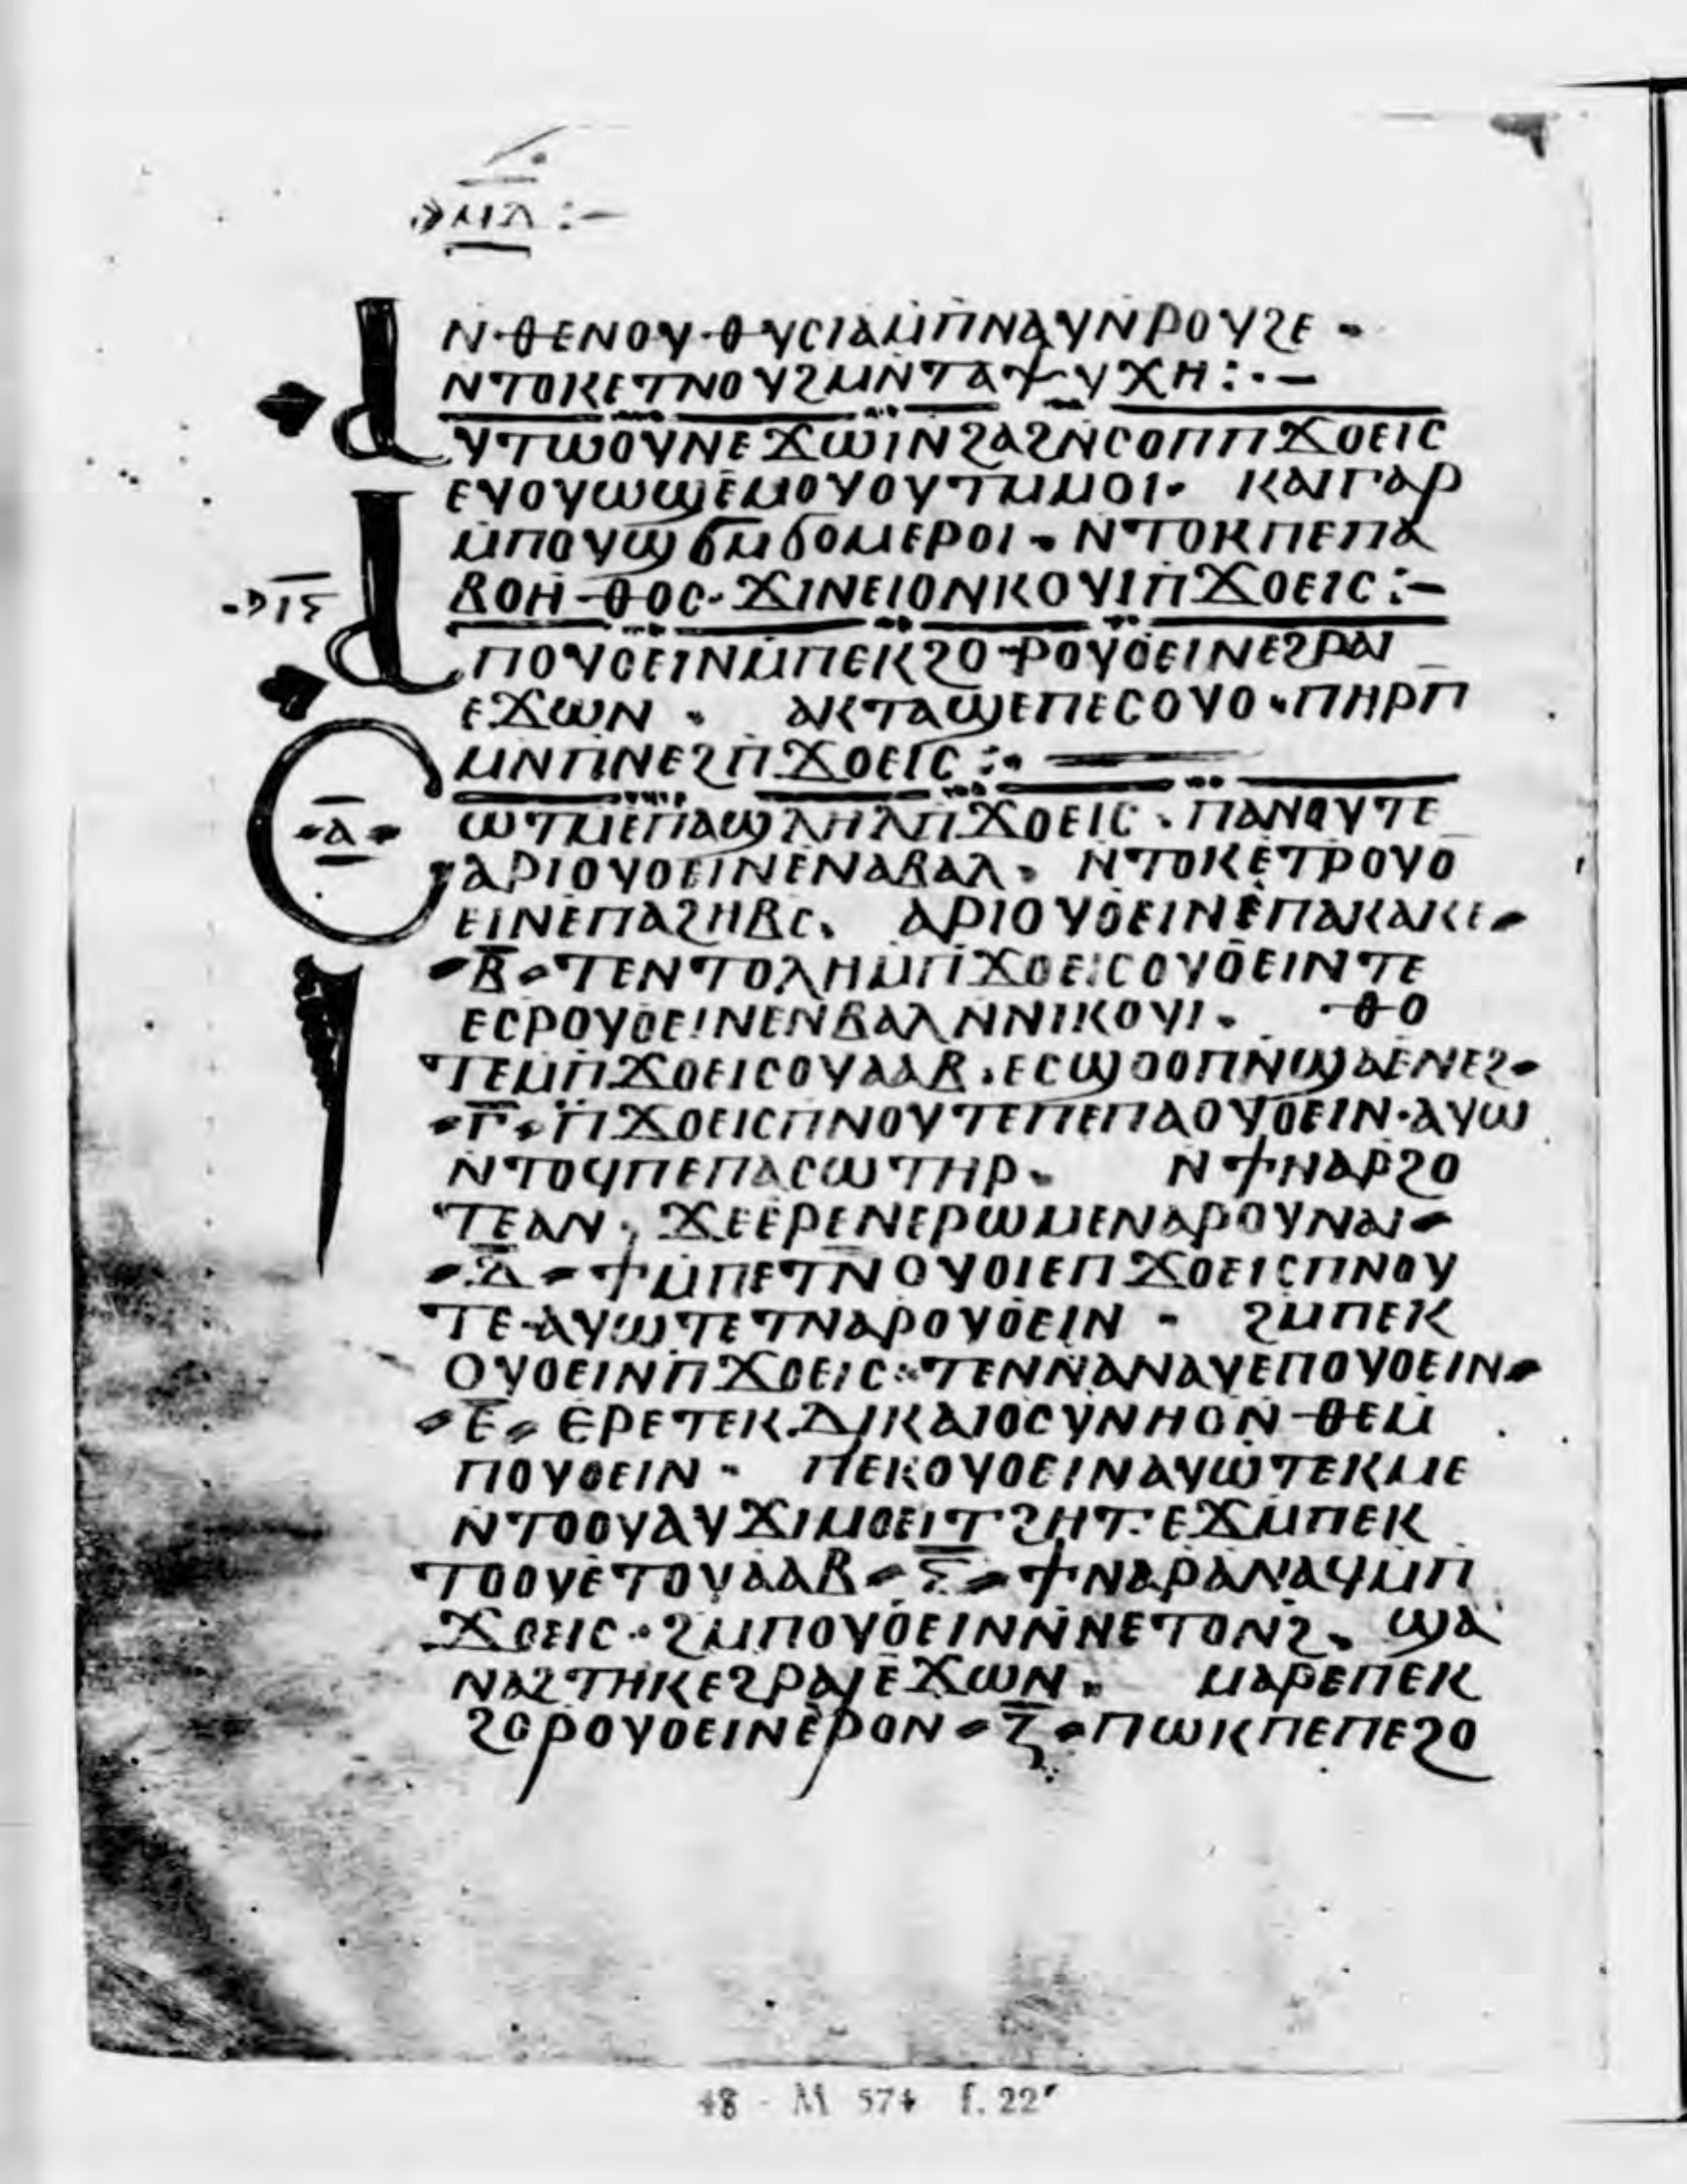 ⲙⲁ:—
ⲛⲑⲉⲛⲟⲩⲑⲩⲥⲓⲁⲙ̄ⲡⲛⲁⲩⲛ̄ⲣⲟⲩϩⲉ·
ⲛⲧⲟⲕⲉⲧⲛⲟⲩϩⲙⲛ̄ⲧⲁⲯⲩⲭⲏ:·—
ⲁⲩⲧⲱⲟⲩⲛⲉϫⲱⲓⲛϩⲁϩⲛ̄ⲥⲟⲡⲡϫⲟⲉⲓⲥ
ⲉⲩⲟⲩⲱϣⲉⲙⲟⲩⲟⲩⲧⲙ̄ⲙⲟⲓ· ⲕⲁⲓⲅⲁⲣ
ⲙ̄ⲡⲟⲩϣϭⲙϭⲟⲙⲉⲣⲟⲓ· ⲛ̄ⲧⲟⲕⲡⲉⲡⲁ
ⲃⲟⲏⲑⲟⲥ·ϫⲓⲛⲉⲓⲟⲛⲕⲟⲩⲓⲡϫⲟⲉⲓⲥ:—
ⲓⲋ
ⲁⲡⲟⲩⲟⲉⲓⲛⲙ̄ⲡⲉⲕϩⲟⲣⲟⲩⲟⲉⲓⲛⲉϩⲣⲁⲓ
ⲉϫⲱⲛ· ⲁⲕⲧⲁϣⲉⲡⲉⲥⲟⲩⲟ·ⲡⲏⲣⲡ
ⲙⲛⲡⲛⲉϩⲡϫⲟⲉⲓⲥ:·
ⲁ
ⲥⲱⲧⲙⲉⲡⲁϣⲗⲏⲗⲡϫⲟⲉⲓⲥ·ⲡⲁⲛⲟⲩⲧⲉ
ⲁⲣⲓⲟⲩⲟⲉⲓⲛⲉⲛⲁⲃⲁⲗ· ⲛ̄ⲧⲟⲕⲉⲧⲣⲟⲩⲟ
ⲉⲓⲛⲉⲡⲁϩⲏⲃⲥ· ⲁⲣⲓⲟⲩⲟⲉⲓⲛⲉⲡⲁⲕⲁⲕⲉ·
ⲃ̄·ⲧⲉⲛⲧⲟⲗⲏⲙ̄ⲡϫⲟⲉⲓⲥⲟⲩⲟⲉⲓⲛⲧⲉ
ⲉⲥⲣⲟⲩⲟⲉⲓⲛⲉⲛⲃⲁⲗⲛ̄ⲛⲓⲕⲟⲩⲓ· ⲑⲟ
ⲧⲉⲙ̄ⲡϫⲟⲉⲓⲥⲟⲩⲁⲁⲃ·ⲉⲥϣⲟⲟⲡⲛ̄ϣⲁⲉⲛⲉϩ·
ⲅ̄·ⲡϫⲟⲉⲓⲥⲡⲛⲟⲩⲧⲉⲡⲉⲡⲁⲟⲩⲟⲉⲓⲛ·ⲁⲩⲱ
ⲛ̄ⲧⲟϥⲡⲉⲡⲁⲥⲱⲧⲏⲣ· ⲛϯⲛⲁⲣϩⲟ
ⲧⲉⲁⲛ· ϫⲉⲉⲣⲉⲛⲉⲣⲱⲙⲉⲛⲁⲣⲟⲩⲛⲁⲓ·
ⲇ̄·ϯⲙ̄ⲡⲉⲧⲛⲟⲩⲟⲓⲉⲡϫⲟⲉⲓⲥⲡⲛⲟⲩ
ⲧⲉ·ⲁⲩⲱⲧⲉⲧⲛⲁⲣⲟⲩⲟⲉⲓⲛ· ϩⲙⲡⲉⲕ
ⲟⲩⲟⲉⲓⲛⲡϫⲟⲉⲓⲥ·ⲧⲉⲛⲛⲁⲛⲁⲩⲉⲡⲟⲩⲟⲉⲓⲛ·
ⲉ̄·ⲉⲣⲉⲧⲉⲕⲇⲓⲕⲁⲓⲟⲥⲩⲛⲏⲟⲛ̄ⲑⲉⲙ̄
ⲡⲟⲩⲟⲉⲓⲛ· ⲡⲉⲕⲟⲩⲟⲉⲓⲛⲁⲩⲱⲧⲉⲕⲙⲉ
ⲛ̄ⲧⲟⲟⲩⲁⲩϫⲓⲙⲟⲉⲓⲧϩⲏⲧ·ⲉϫⲙ̄ⲡⲉⲕ
ⲧⲟⲟⲩⲉⲧⲟⲩⲁⲁⲃ·ⲋ̄·ϯⲛⲁⲣⲁⲛⲁϥⲙ̄ⲡ
ϫⲟⲉⲓⲥ·ϩⲙⲡⲟⲩⲟⲉⲓⲛⲛ̄ⲛⲉⲧⲟⲛϩ· ϣⲁ
ⲛⲁϩⲧⲏⲕⲉϩⲣⲁⲓⲉϫⲱⲛ· ⲙⲁⲣⲉⲡⲉⲕ
ϩⲟⲣⲟⲩⲟⲉⲓⲛⲉⲣⲟⲛ·ⲍ̄·ⲡⲱⲕⲡⲉⲡⲉϩⲟ
48 - M 574 f. 22ʳ